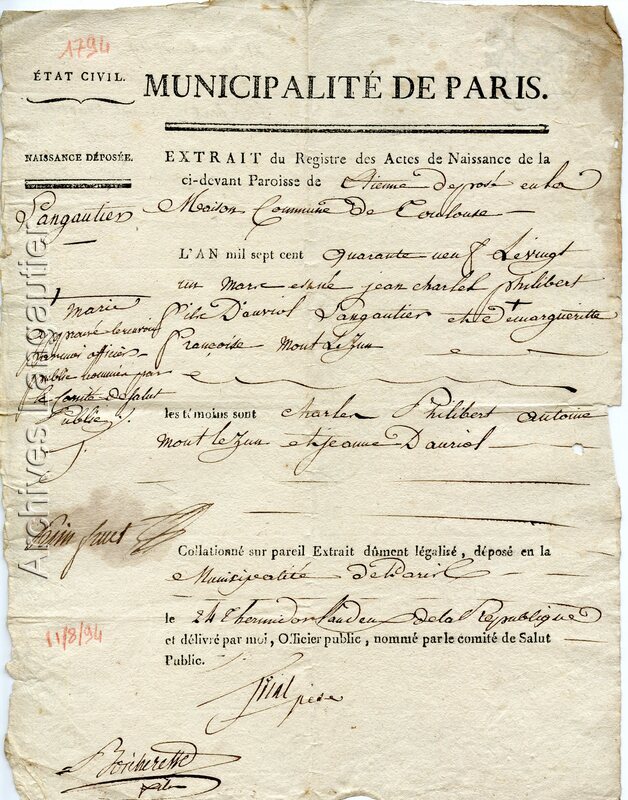 1794
ÉTAT CIVIL.
MUNICIPALITÉ DE PARIS.
NAISSANCE DÉPOSÉE.
EXTRAIT du Registre des Actes de Naissance de la
ci-devant Paroisse de Etienne deposé en la
Maison Commune de Toulouse
Langautier
L'AN mil sept cent quarante neuf Le vingt
un mars est né jean charles philibert
fils D'auriol Langautier et de + margueritte
françoise Montlezun
+ marie
approuvé
par moi officier
public nommé par
le Comité de Salut
Public
les témoins sont charles Philibert antoine
montlezun et jeanne Dauriol
Collationné sur pareil Extrait dûment légalisé, déposé en la
Municipalité de Paris
le 24 Thermidor L'an deux de la République
et délivré par moi, Officier public, nommé par le comité de Salut
Public.
11/8/94
Archives Langautier